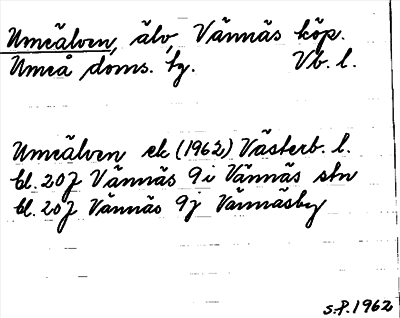 Umeälven, älv, Vännäs köp.
Umeå doms. tg. Vb. l.
Umeälven ek (1962) Västerb. l.
bl. 20J Vännäs 9i Vännäs stn
bl. 20J Vännäs 9j Vännäsby
S.P. 1962